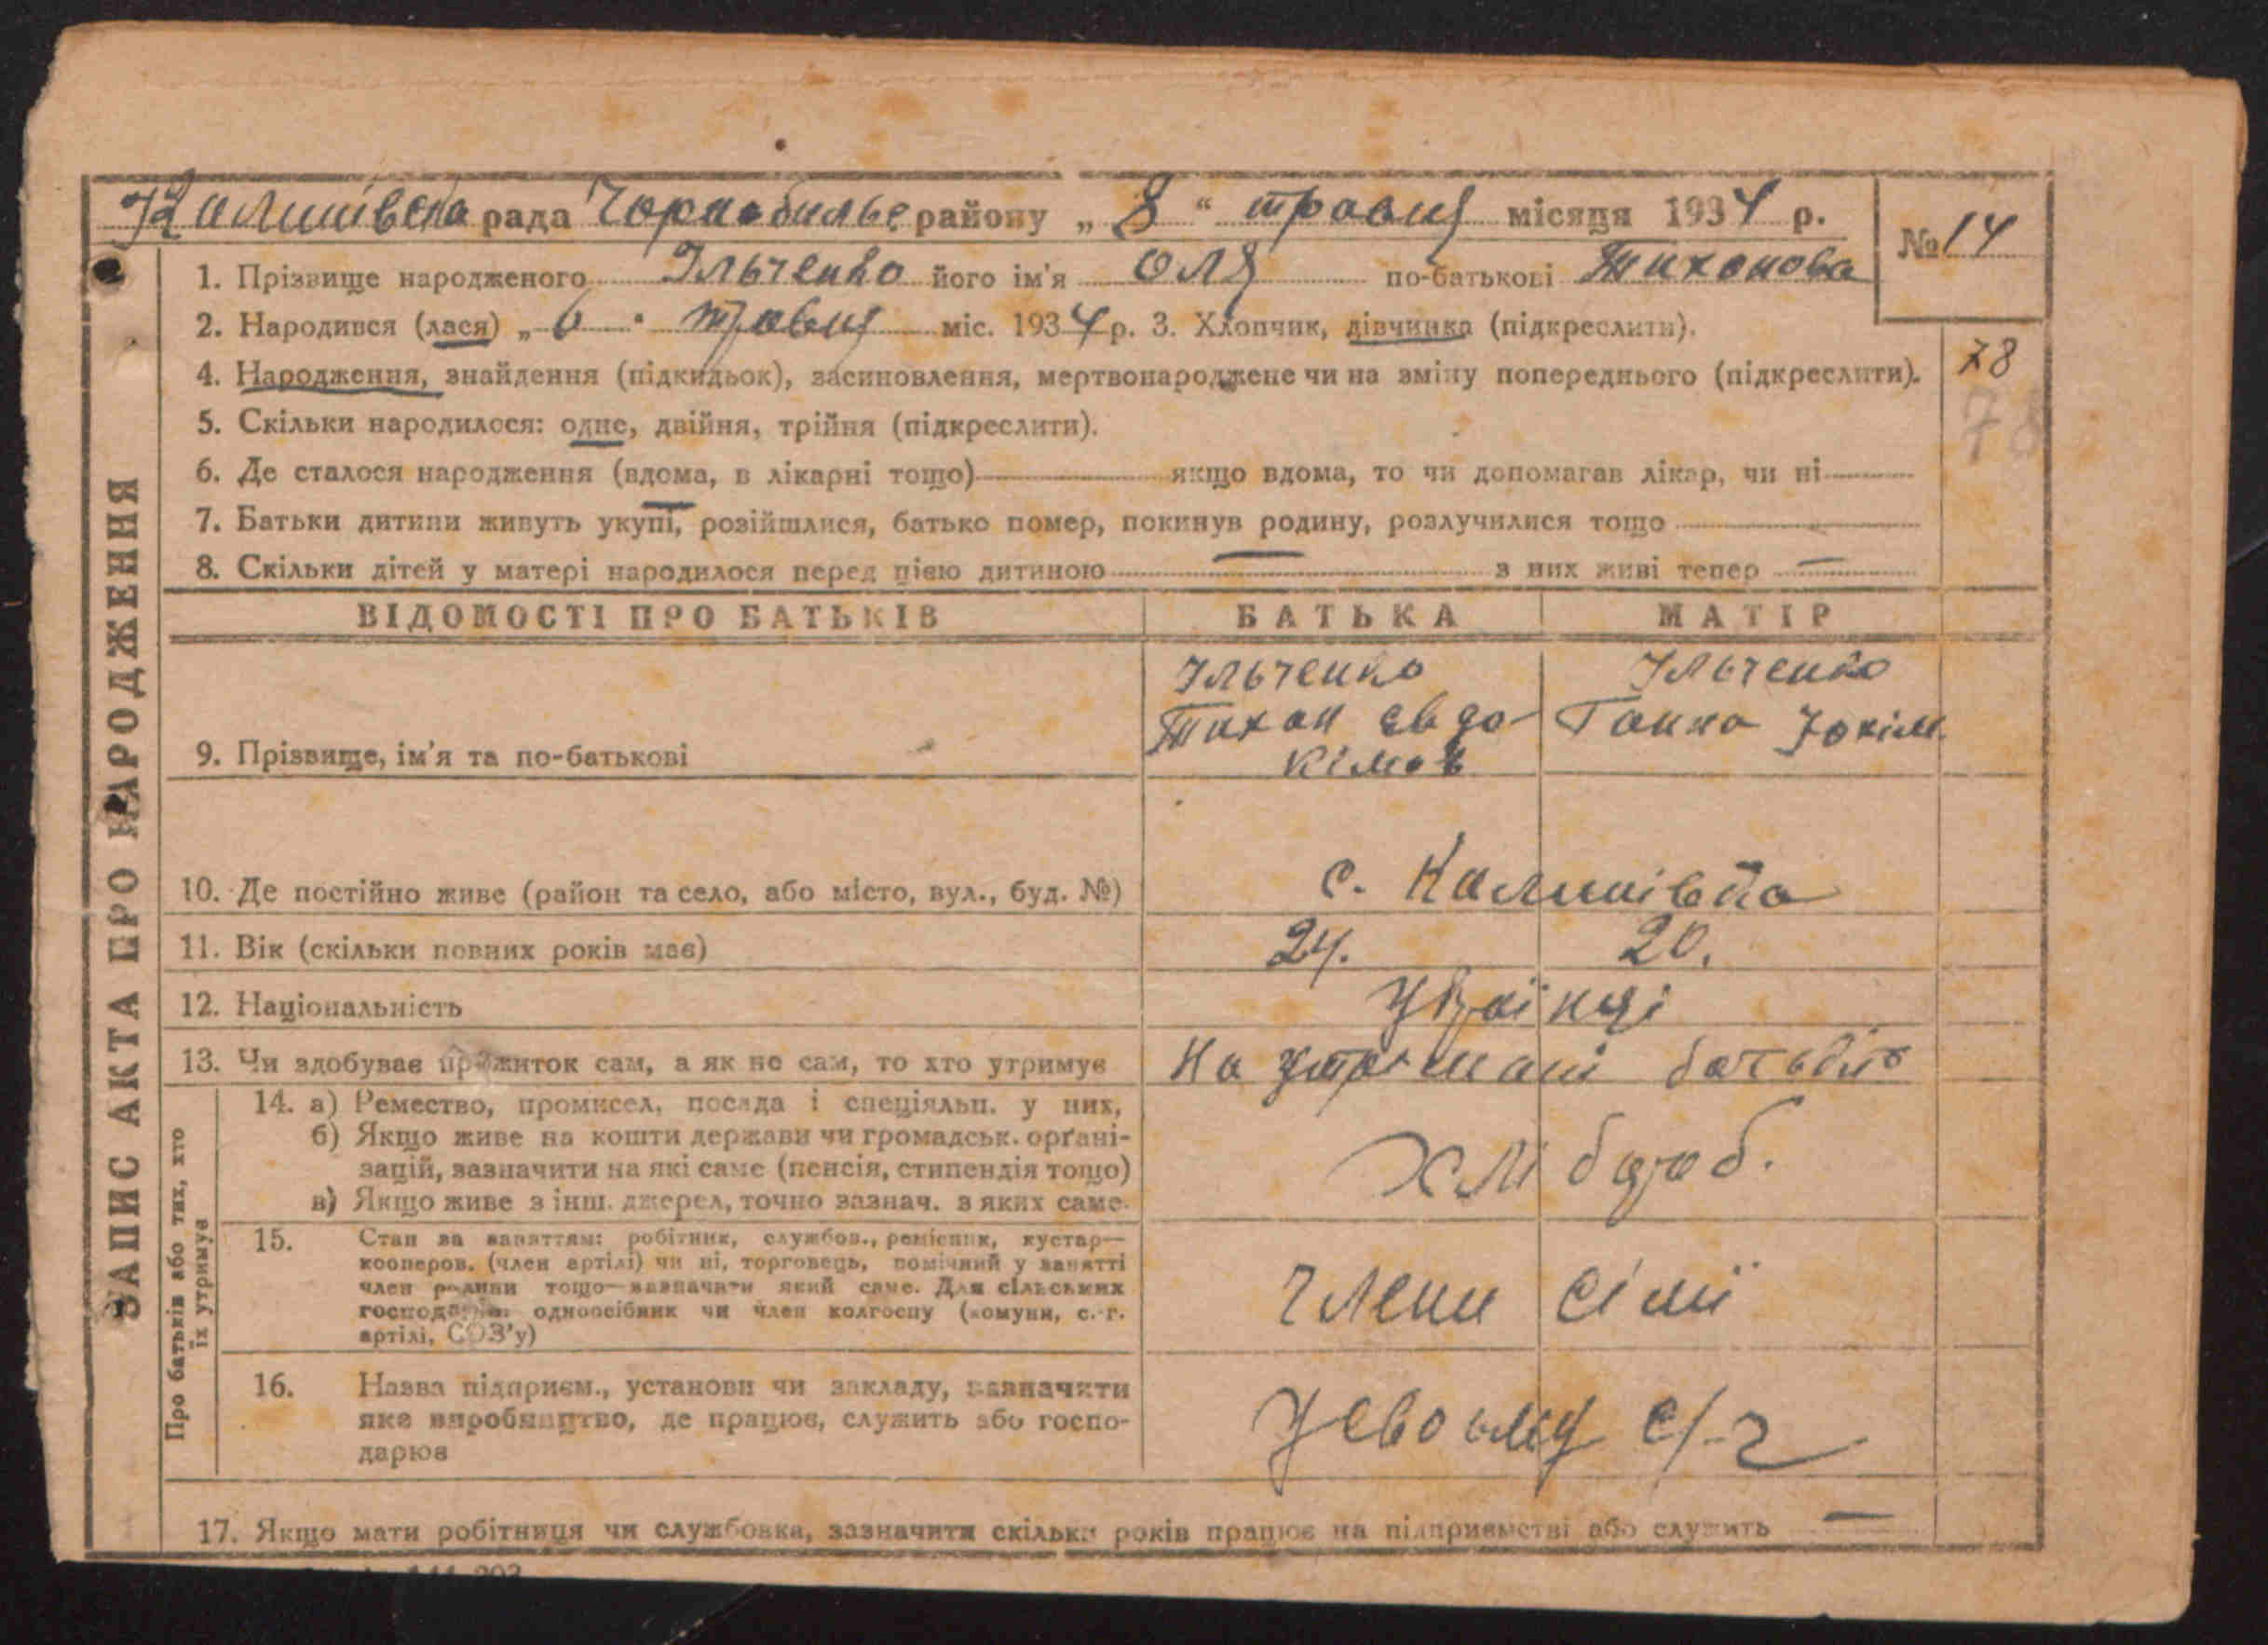 Калинівська рада Чорнобильс району „8“ травня місяця 1934 р.
№ 14
1. Прізвище народженого Ільченко його ім'я Оля по-батькові Тихонова
2. Народився (лася) „6" травня міс. 1934 р. 3. Хлопчик, дівчинка (підкреслити).
4. Народження, знайдення (підкидьок), засиновлення, мертвонароджене чи на зміну попереднього (підкреслити).
78
78
5. Скільки народилося: одне, двійня, трійня (підкреслити).
6. Де сталося народження (вдома, в лікарні тощо) якщо вдома, то чи допомагав лікар, чи ні
7. Батьки дитини живуть укупі, розійшлися, батько помер, покинув родину, розлучилися тощо
8. Скільки дітей у матері народилося перед цією дитиною — з них живі тепер —
ЗАПИС АКТА ПРО НАРОДЖЕННЯ
ВІДОМОСТІ ПРО БАТЬКІВ БАТЬКА МАТІР
9. Прізвище, ім'я та по-батькові
Ільченко
Тихон Євдо-
кімов
Ільченко
Ганна Юкім.
10. Де постійно живе (район та село, або місто, вул., буд. №) с. Калинівка
11. Вік (скільки повних років має) 24. 20.
12. Національність Украінці
13. Чи здобуває прожиток сам, а як не сам, то хто утримує На утримані батьків
Про батьків або тих, хто
їх утримує
14. а) Ремество, промисел, посада і спеціяльн. у них,
б) Якщо живе на кошти держави чи громадськ. орґані-
зацій, зазначити на які саме (пенсія, стипендія тощо)
в) Якщо живе з інш. джерел, точно зазнач. з яких саме.
Хлібороб.
15. Стан за заняттям: робітник, службов., ремісник, кустар—
кооперов. (член артілі) чи ні, торговець, помічний у занятті
член родини тощо—зазначити який саме. Для сільських
господарів: одноосібник чи член колгоспу (комуни, с.-г.
артілі, СОЗ'у)
Члени сімї
16. Назва підприєм., установи чи закладу, зазначити
яке виробництво, де працює, служить або госпо-
дарює
У своьму с/-г
17. Якщо мати робітниця чи службовка, зазначити скільки років працює на підприємстві або служить —